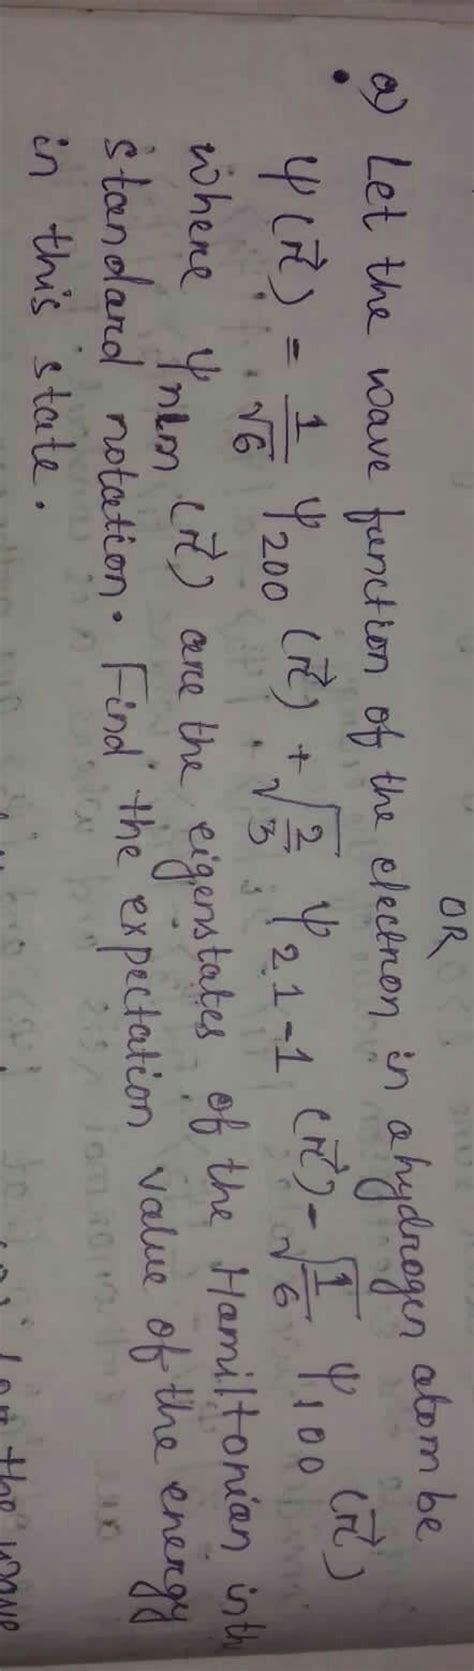 OR
a) Let the wave function of the electron in a hydrogen atom be
ψ(r⃗) = 1/√6 ψ200 (r⃗) + √(2/3) ψ21-1 (r⃗) - √(1/6) ψ100 (r⃗)
where ψnlm (r⃗) are the eigenstates of the Hamiltonian in th
standard notation. Find the expectation value of the energy
in this state.
the wave